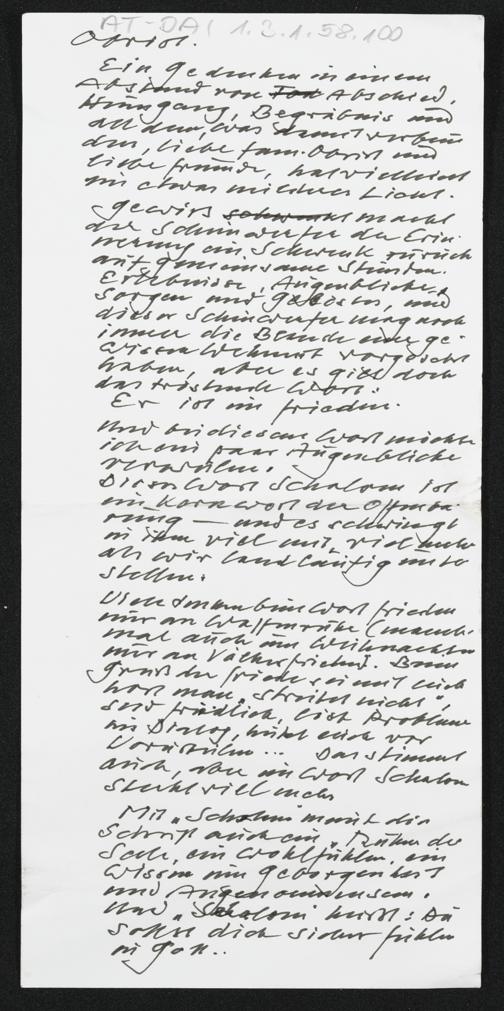 AT-DAI 1.3.1.58.100
Obrist.
Ein Gedenken in einem
Abstand von Tod Abschied,
Hinngang, Begräbnis und
all dem, was damit verbun
den, liebe Fam. Obrist und
liebe Freunde, hat vielleicht
ein etwas milderes Licht.
Gewiss macht
der Scheinwerfer der Erin
nerung ein Schwenk zurück
auf gemeinsame Stunden.
Erlebnisse, Augenblicke,
Sorgen und Gelöstes, und
dieser Scheinwerfer mag auch
immer die Blende einer ge-
wissen Wehmut vorgesetzt
haben, aber es gibt doch
das tröstende Wort:
Er ist im Frieden.
Und bei diesem Wort möchte
ich ein paar Augenblicke
verweilen.
Dieses Wort Schalom ist
ein Kernwort der Offenba
rung — und es schwingt
in ihm viel mit, viel mehr
als wir landläufig unter
stellen.
Viele denken beim Wort Frieden
nur an Waffenruhe (manch-
mal auch um Weihnachten
nur an Völkerfrieden). Beim
Gruß der Friede sei mit euch
hört man „streitet nicht",
seid friedlich, löst Probleme
im Dialog, hütet euch vor
Vorurteilen ... Das stimmt
auch, aber im Wort Schalom
steckt viel mehr
Mit „Schalom" meint die
Schrift auch ein „Ruhen der
Seele, ein Wohlfühlen, ein
Wissen um Geborgenheit
und Angenommensein.
Und „Schalom" heißt: Du
sollst dich sicher fühlen
in Gott..